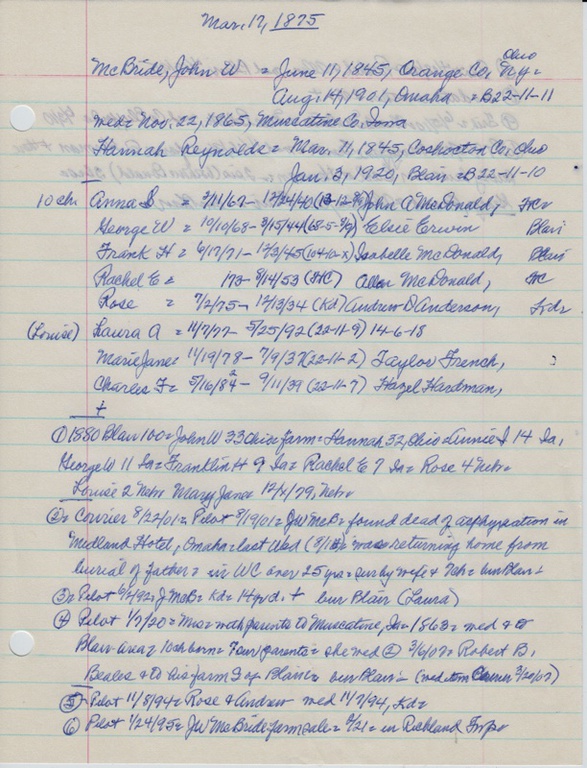 Mar. 17, 1875
McBride, John W = June 11, 1845, Orange Co, Ohio N.Y. =
Aug. 14, 1901, Omaha = B22-11-11
med = Nov. 22, 1865, Muscatine Co. Iowa
Hannah Reynolds = Mar. 11, 1845, Coshocton Co, Ohio
Jan. 3, 1920, Blair = B22-11-10
10 chi Anna = 3/11/67 - 12/24/40 John A McDonald,
George W = 10/10/68 - 3/15/44 (68-5- Elsie Erwin Blair
Frank H = 6/17/71 - 12/3/45 (104-10-x) Isabelle McDonald, Blair
Rachel E = 173 - 8/14/53 Allan McDonald,
Rose = 7/2/75 - 12/13/34 (Kd) Andrew D Anderson,
(Louise) Laura A = 11/7/77 - 5/25/92 (22-11-9) 14-6-18
Marie Jane = 11/19/78 - 7/9/37 (22-11-2) Taylor French,
Charles F = 5/16/84 - 9/11/39 (22-11-7) Hazel Hardman,
+
① 1880 Blair 100 = John W 33 Ohio = farm = Hannah 32, Ohio = Annie 14 Ia,
George W 11 Ia = Franklin H 9 Ia = Rachel E 7 Ia = Rose 4 Nebr =
Louise 2 Nebr Mary Jane 12/x/79, Nebr
② = Courier 8/22/01 = Pilot 8/19/01 = JW McB = found dead of asphyxation in
Midland Hotel, Omaha = last Wed = was returning home from
burial of father = in WC over 25 yrs = sur by wife + 7ch = bur Blair +
③ = Pilot 6/2/92 = J McB = Kd = 14 yr d. + bur Blair (Laura)
④ Pilot 1/7/20 = Mrs = with parents to Muscatine, Ia = 1863 = med + to
Blair area = 10ch born = parents = she wed ② 3/6/07 = Robert B,
Beales + to his farm S of Blair = bur Blair = (wed Courier 3/20/07)
⑤ = Pilot 11/8/94 = Rose + Andrew med 11/7/94, Kd =
⑥ Pilot 1/24/95 = JW McBride farm sale = 2/21 = in Richland Twp =